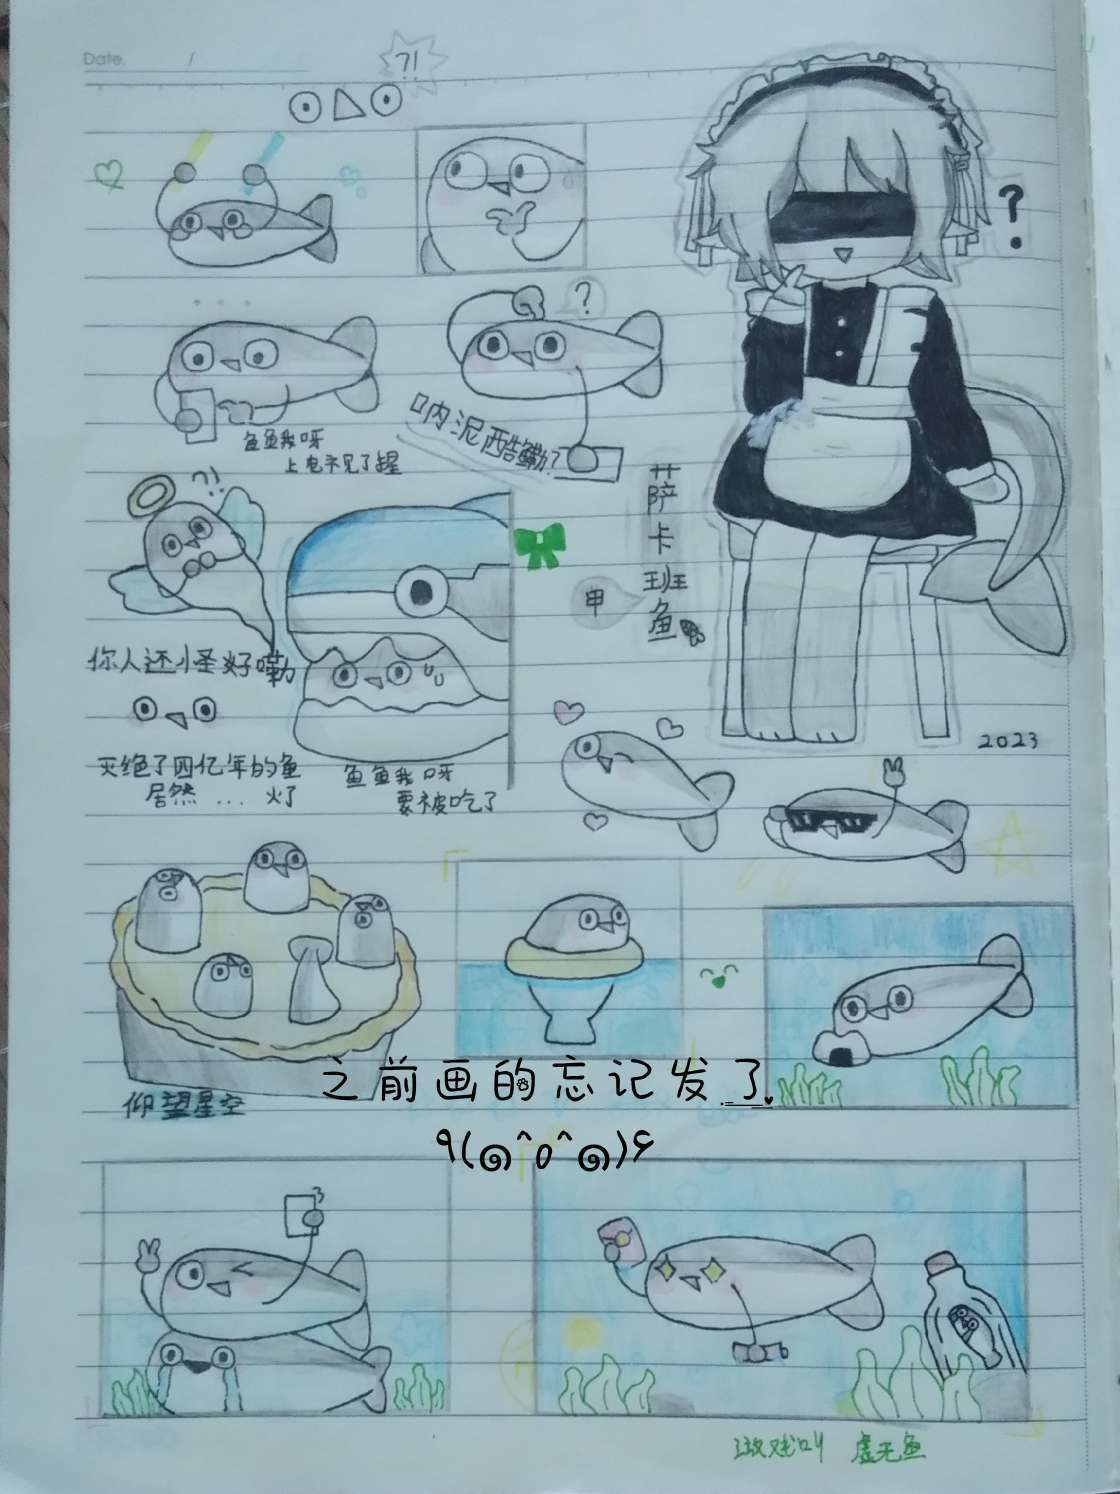 Date.
?!
?
?
...
鱼鱼我呀
上电不见了喔
呐泥酷嘞?
?!
萨卡班鱼
申
你人还怪好嘞
灭绝了四亿年的鱼
居然 ... 火了
鱼鱼我呀
要被吃了
2023
仰望星空
之前画的忘记发了
游戏叫 虚无鱼